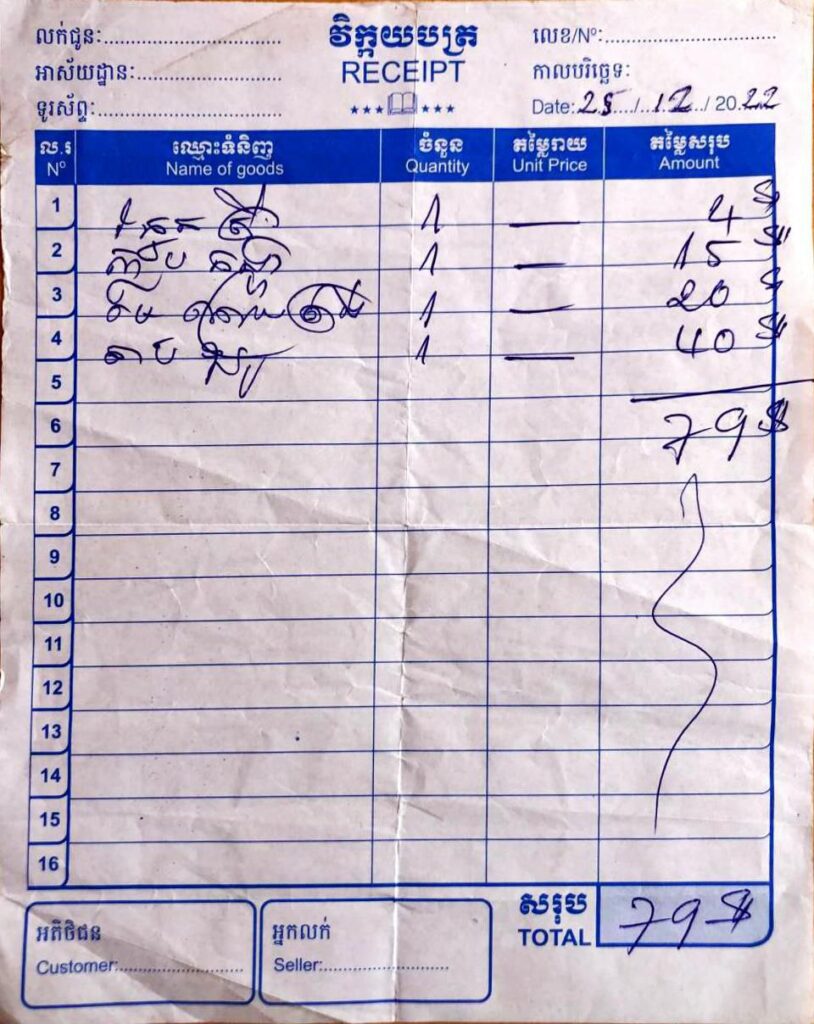 លក់ជូន:................................ វិក្កយបត្រ លេខ/Nº:................................
អាស័យដ្ឋាន:................................ RECEIPT កាលបរិច្ឆេទ:
ទូរស័ព្ទ:................................ Date: 25/12/2022
ល.រ ឈ្មោះទំនិញ ចំនួន តម្លៃរាយ តម្លៃសរុប
Nº Name of goods Quantity Unit Price Amount
1 1 — 4$
2 1 — 15$
3 1 — 20$
4 1 — 40$
5
6 79$
7
8
9
10
11
12
13
14
15
16
សរុប 79$
TOTAL
អតិថិជន អ្នកលក់
Customer:................................ Seller:................................